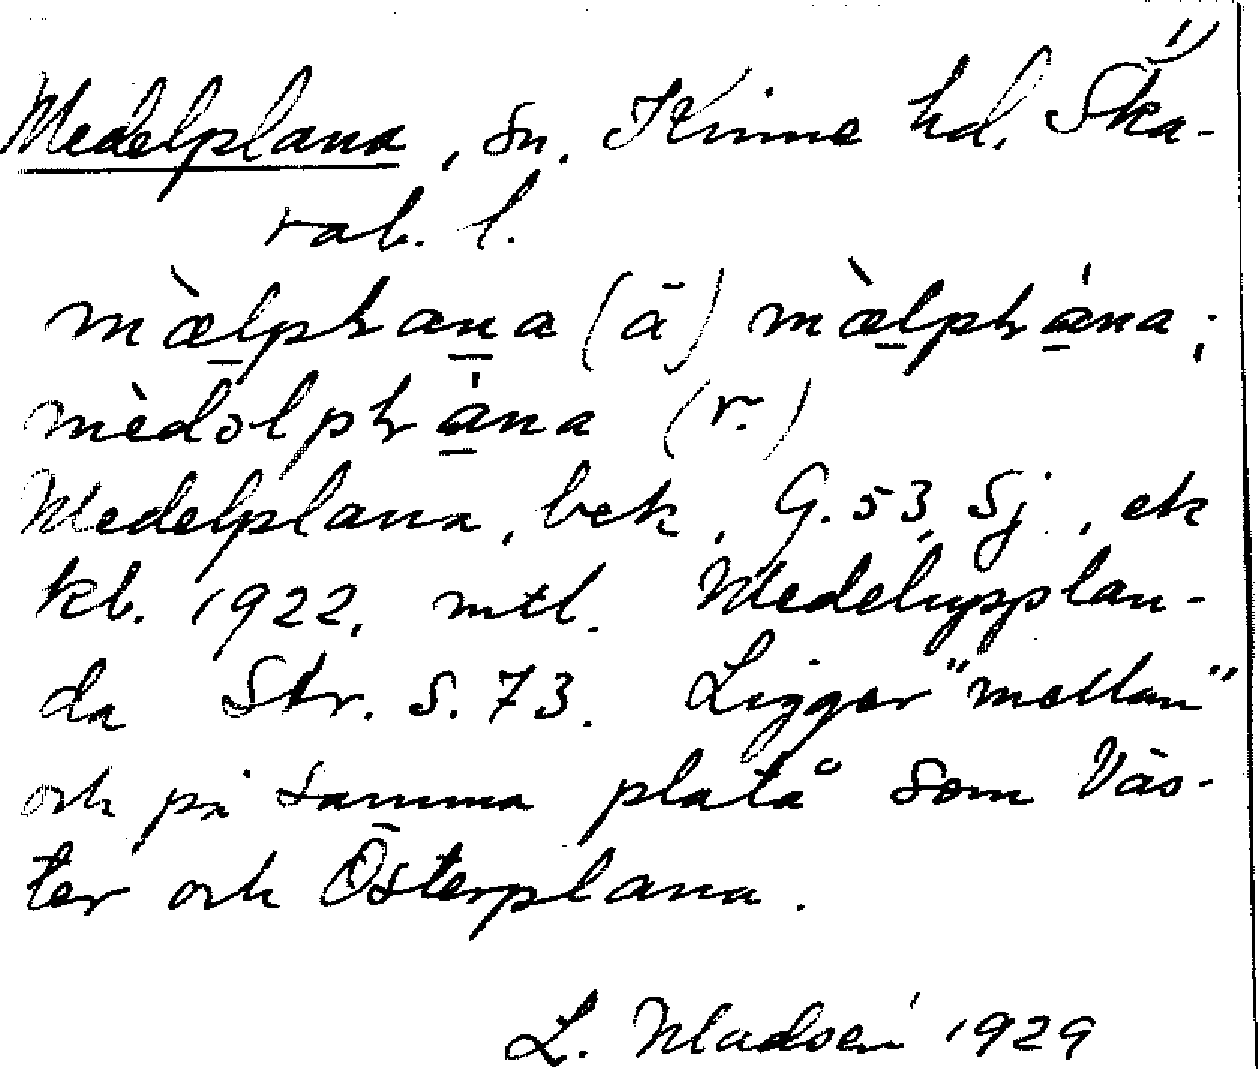 1)
Medelplana, sn. Kinne hd. Ska-
rab. l.
mæ̀lphæna (ā) mæ̀lphǽna;
mèdolphǽna (r.)
Medelplana, bek. G. 53, Sj., ek
kb. 1922, mtl. Medelupplan-
da Str. s. 73. Ligger "mellan"
och på samma platå som Väs-
ter och Österplana.
L. Madsén 1929